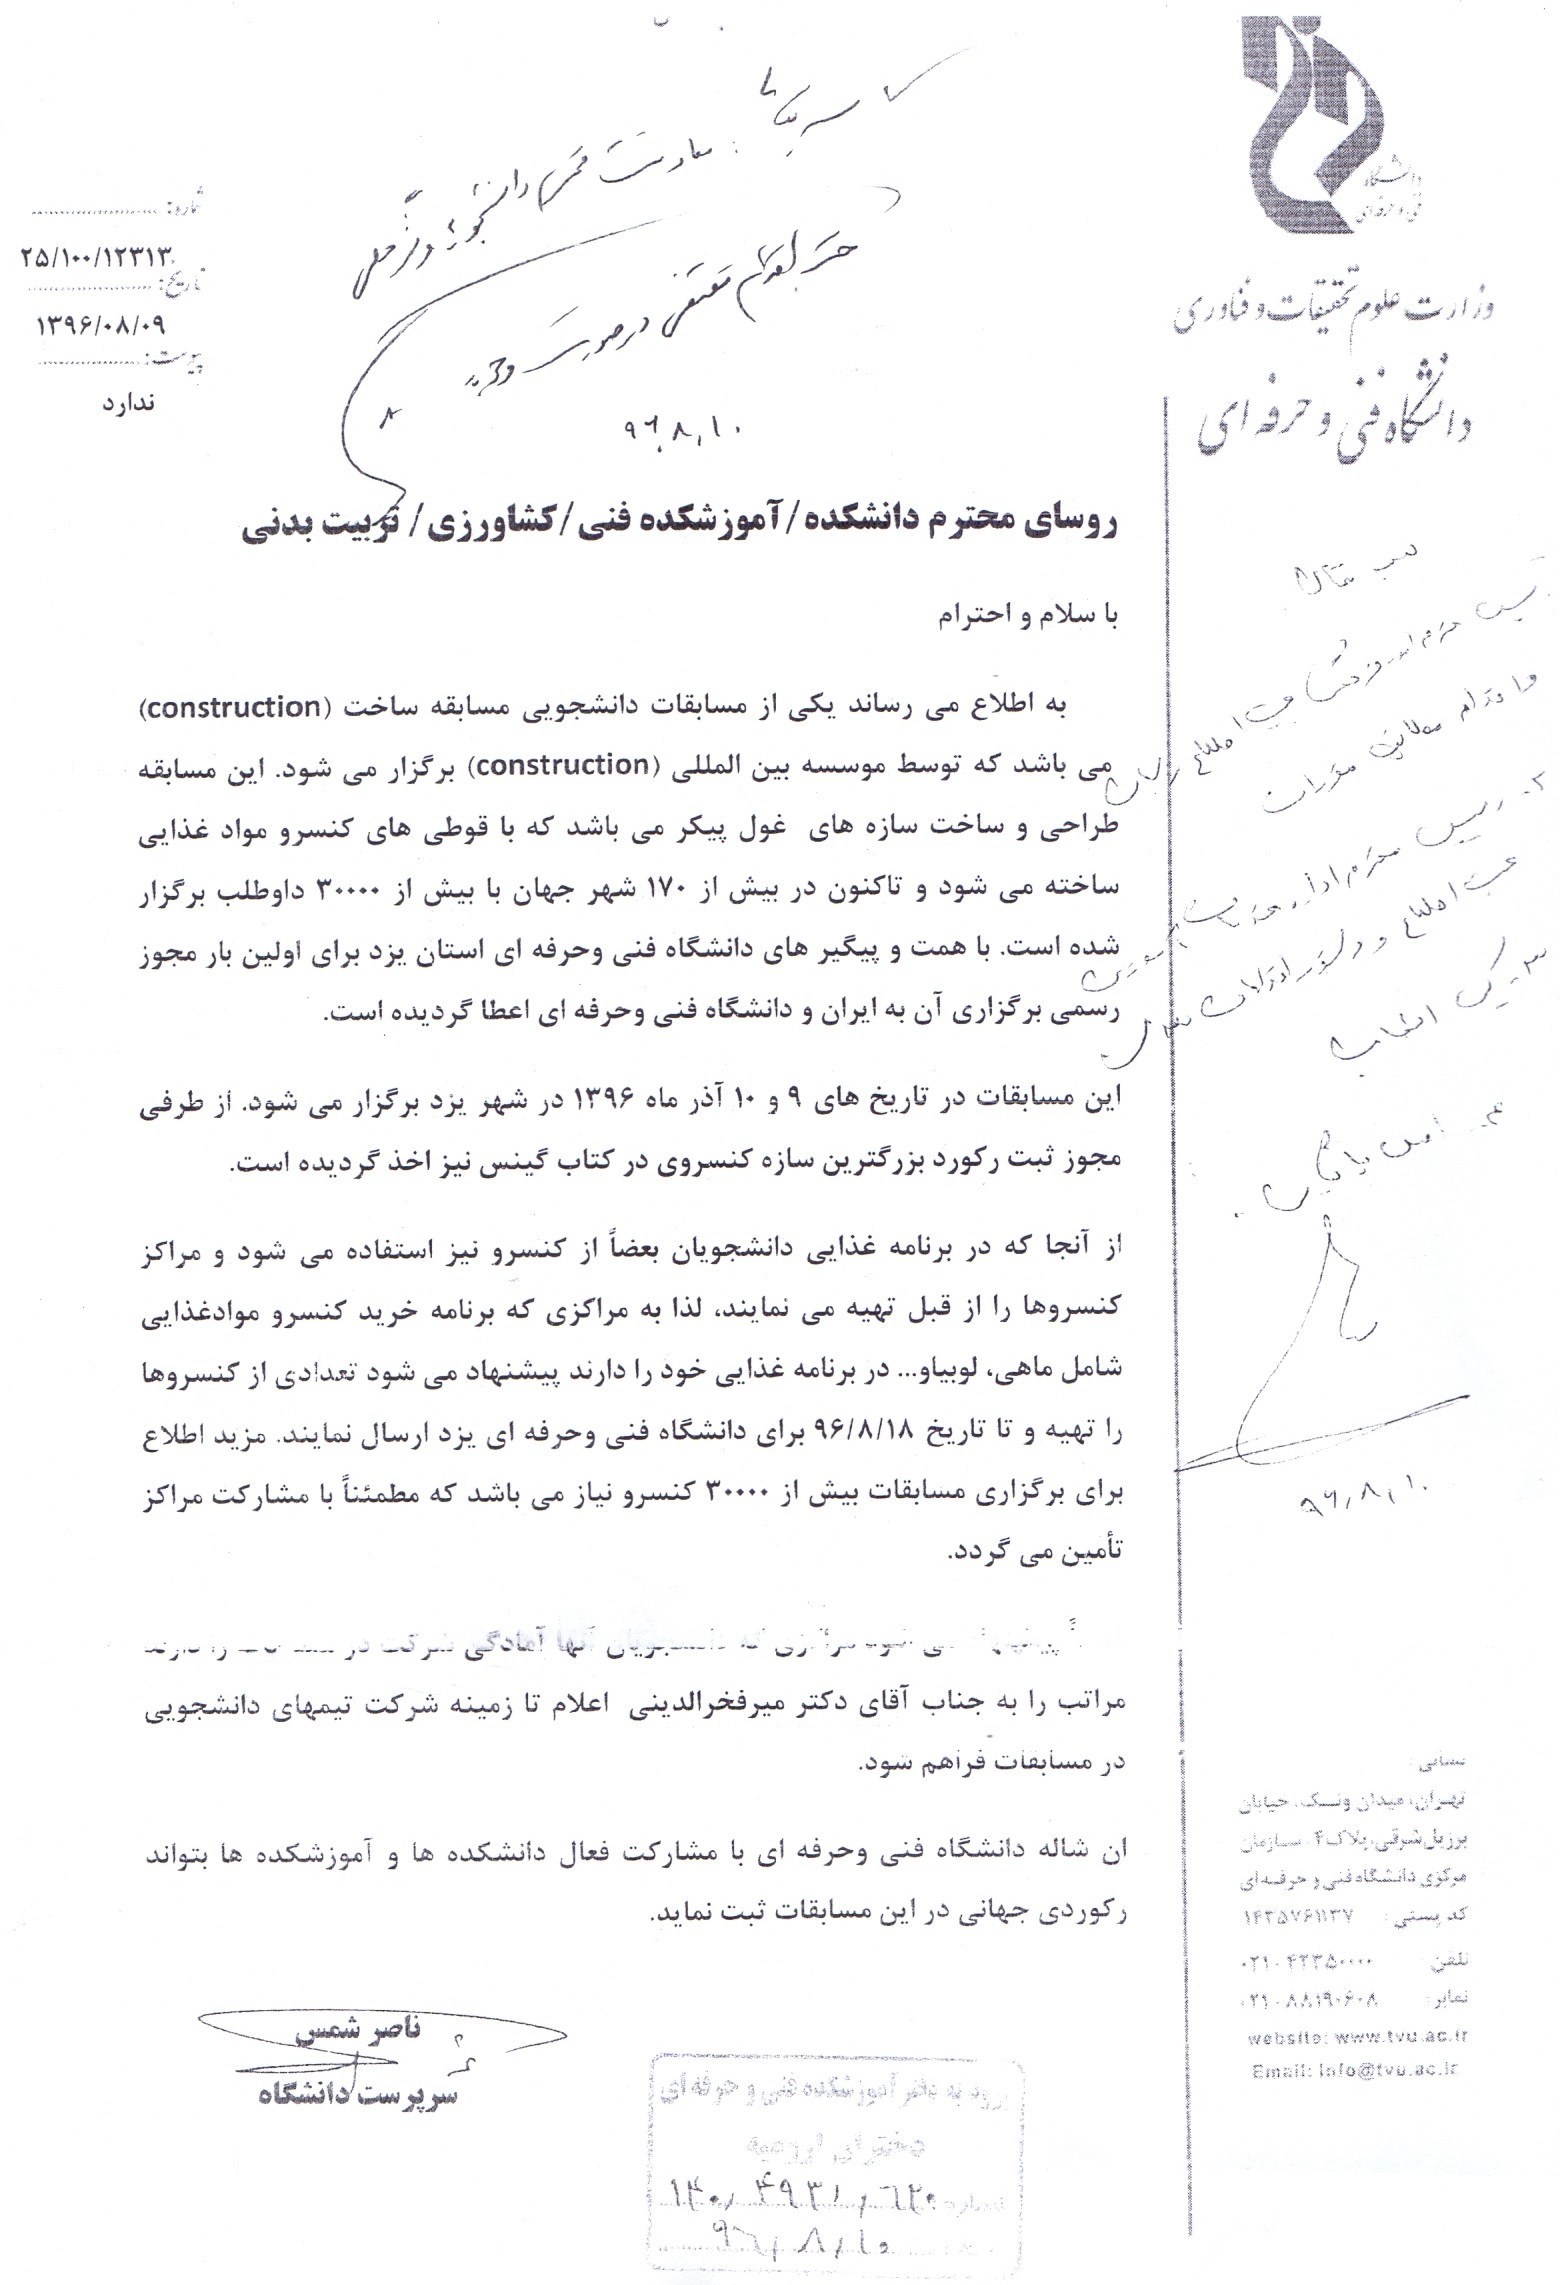 شماره:
۲۵/۱۰۰/۱۲۳۱۳
تاریخ:
۱۳۹۶/۰۸/۰۹
پیوست:
ندارد
دانشگاه
فنی و حرفه ای
وزارت علوم تحقیقات و فناوری
دانشگاه فنی و حرفه ای
۹۶،۸،۱۰
روسای محترم دانشکده/آموزشکده فنی/کشاورزی/تربیت بدنی
با سلام و احترام
به اطلاع می رساند یکی از مسابقات دانشجویی مسابقه ساخت (construction)
می باشد که توسط موسسه بین المللی (construction) برگزار می شود. این مسابقه
طراحی و ساخت سازه های غول پیکر می باشد که با قوطی های کنسرو مواد غذایی
ساخته می شود و تاکنون در بیش از ۱۷۰ شهر جهان با بیش از ۳۰۰۰۰ داوطلب برگزار
شده است. با همت و پیگیر های دانشگاه فنی وحرفه ای استان یزد برای اولین بار مجوز
رسمی برگزاری آن به ایران و دانشگاه فنی وحرفه ای اعطا گردیده است.
این مسابقات در تاریخ های ۹ و ۱۰ آذر ماه ۱۳۹۶ در شهر یزد برگزار می شود. از طرفی
مجوز ثبت رکورد بزرگترین سازه کنسروی در کتاب گینس نیز اخذ گردیده است.
از آنجا که در برنامه غذایی دانشجویان بعضاً از کنسرو نیز استفاده می شود و مراکز
کنسروها را از قبل تهیه می نمایند، لذا به مراکزی که برنامه خرید کنسرو موادغذایی
شامل ماهی، لوبیاو... در برنامه غذایی خود را دارند پیشنهاد می شود تعدادی از کنسروها
را تهیه و تا تاریخ ۹۶/۸/۱۸ برای دانشگاه فنی وحرفه ای یزد ارسال نمایند. مزید اطلاع
برای برگزاری مسابقات بیش از ۳۰۰۰۰ کنسرو نیاز می باشد که مطمئناً با مشارکت مراکز
تأمین می گردد.
مراکزی که دانشجویان آنها آمادگی شرکت در را دارند
مراتب را به جناب آقای دکتر میرفخرالدینی اعلام تا زمینه شرکت تیمهای دانشجویی
در مسابقات فراهم شود.
ان شاله دانشگاه فنی وحرفه ای با مشارکت فعال دانشکده ها و آموزشکده ها بتواند
رکوردی جهانی در این مسابقات ثبت نماید.
ناصر شمس
سرپرست دانشگاه
۹۶،۸،۱۰
نشانی:
تهران، میدان ونک، خیابان
برزیل شرقی، پلاک ۴، سازمان
مرکزی دانشگاه فنی و حرفه ای
کد پستی: ۱۴۳۵۷۶۱۱۳۷
تلفن: ۰۲۱-۴۲۳۵۰۰۰۰
نمابر: ۰۲۱-۸۸۱۹۰۶۰۸
website: www.tvu.ac.ir
Email: info@tvu.ac.ir
ورود به دفتر آموزشکده فنی و حرفه ای
دختران ارومیه
شماره:
۹۶،۸،۱۰